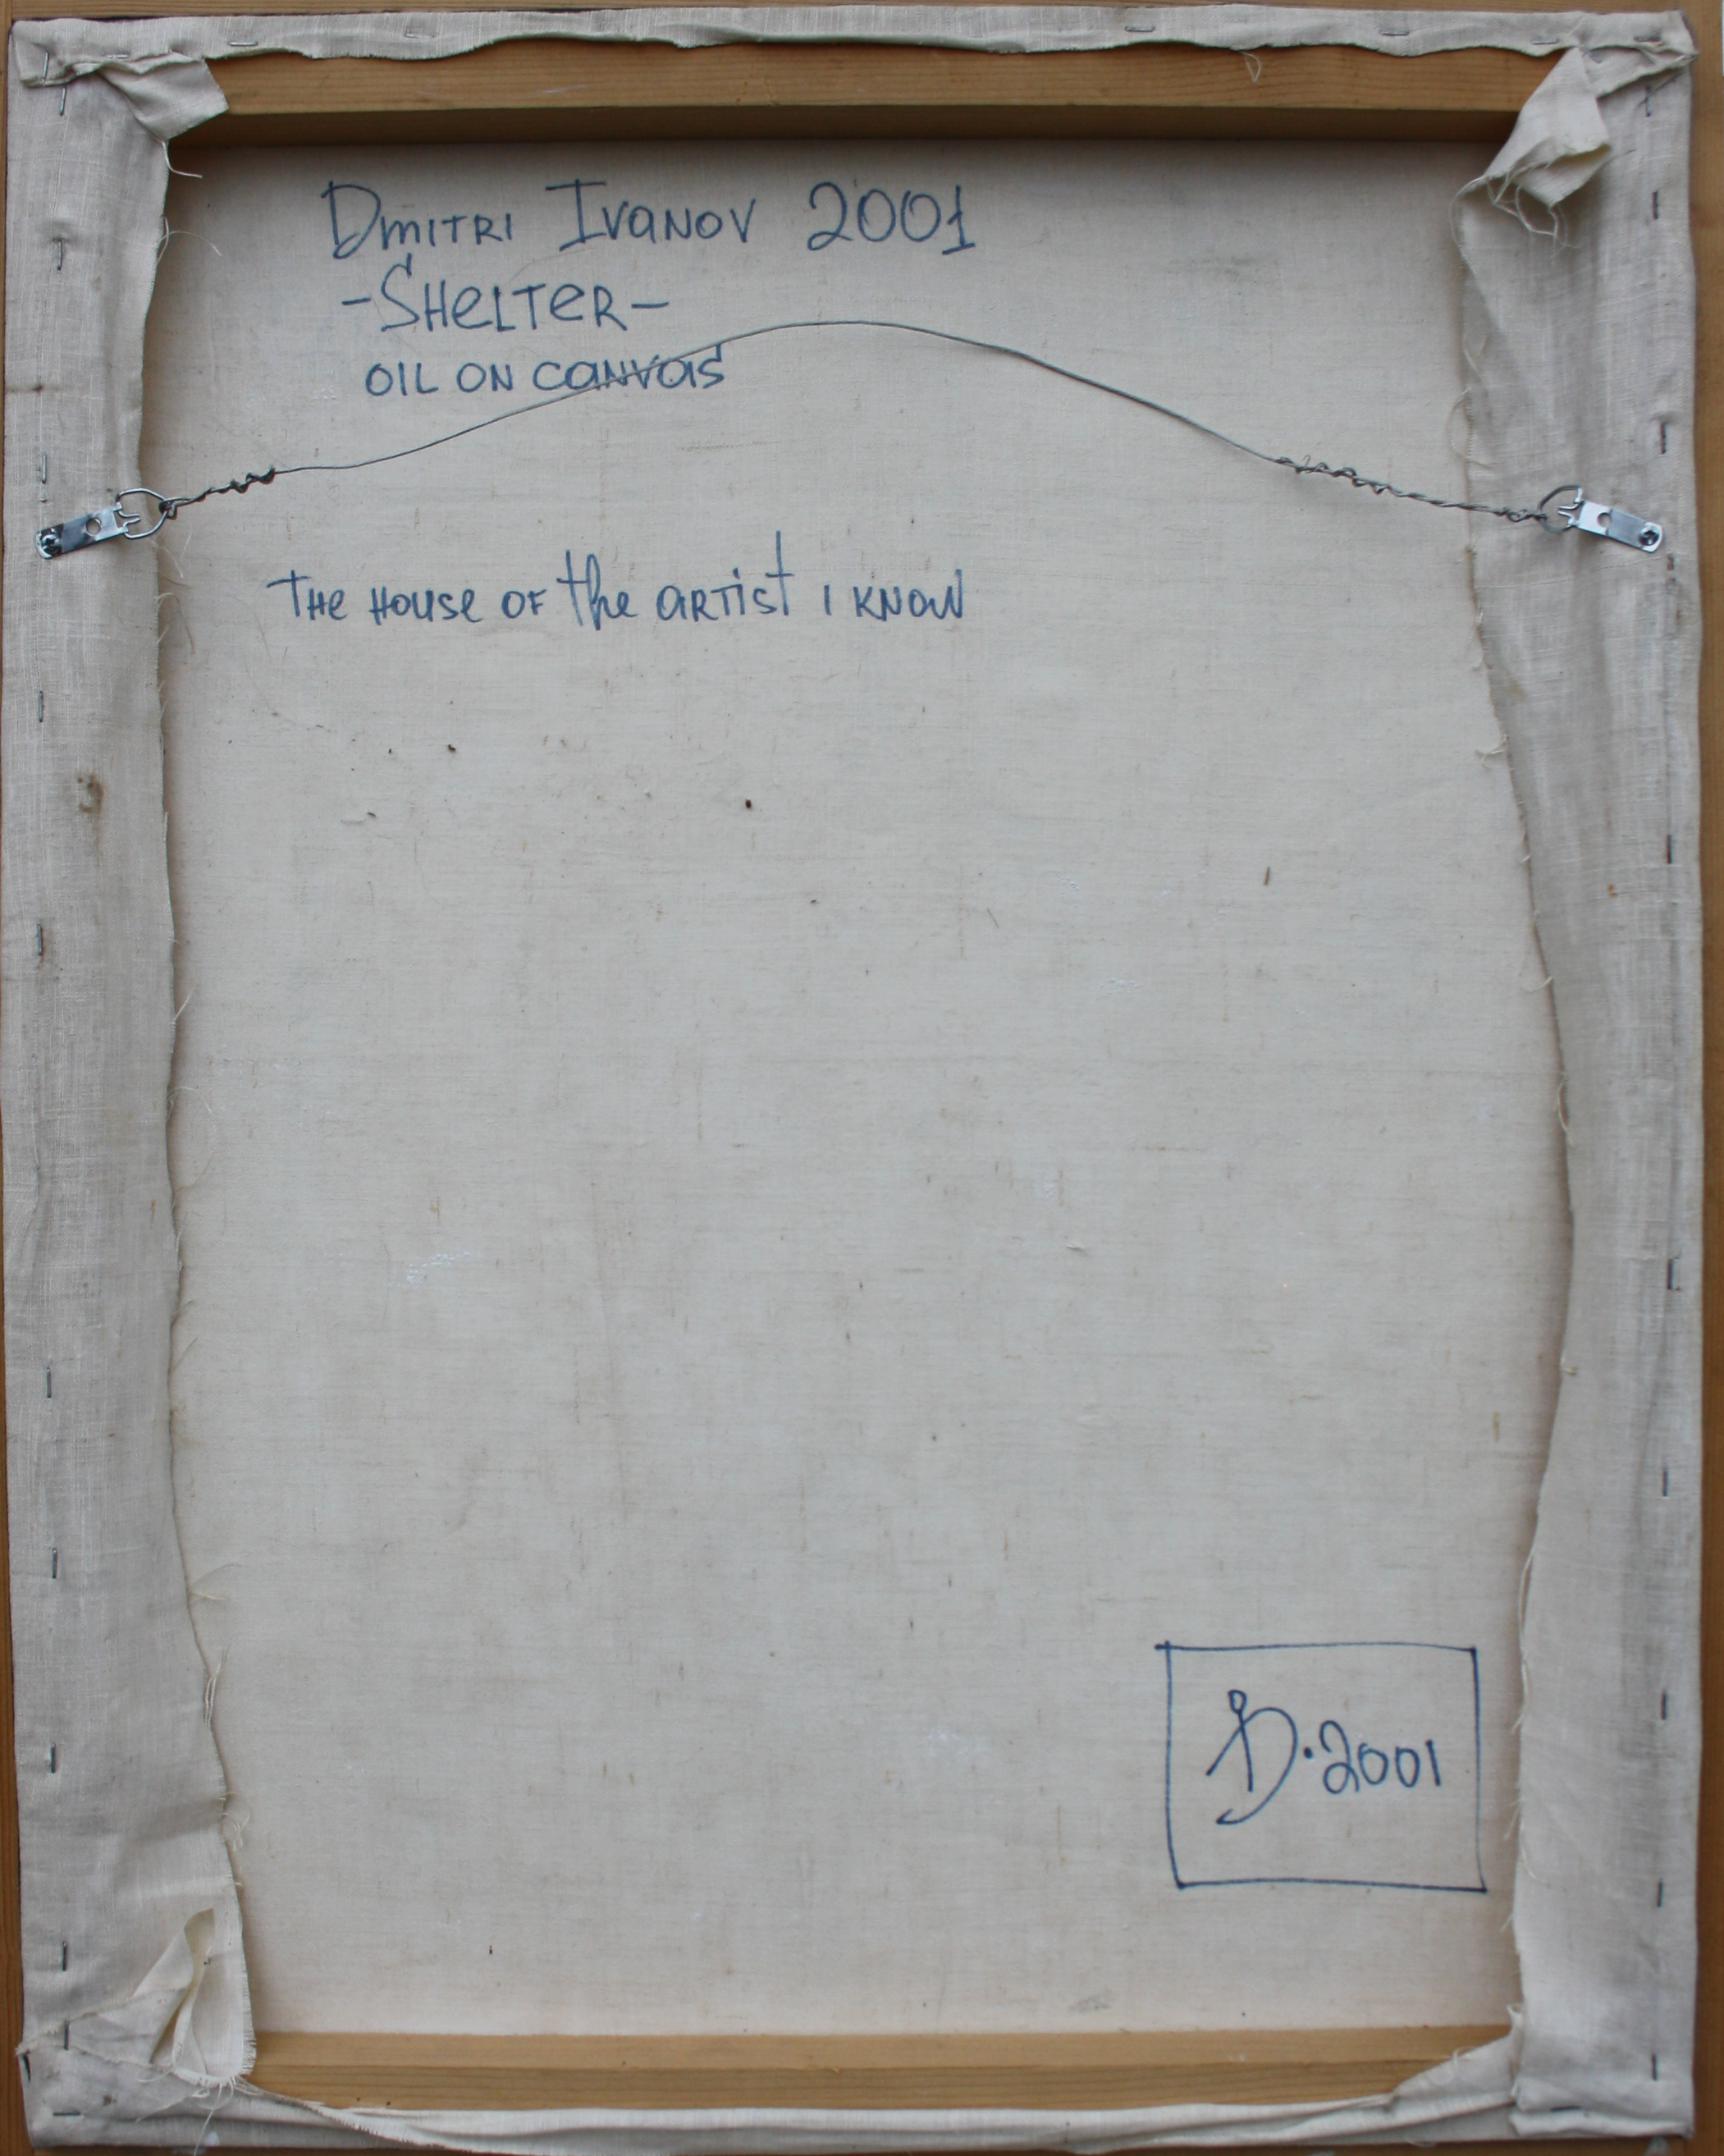 Dmitri Ivanov 2001
-Shelter-
OIL ON canvas
THe House OF the artist I KNOW
D.2001